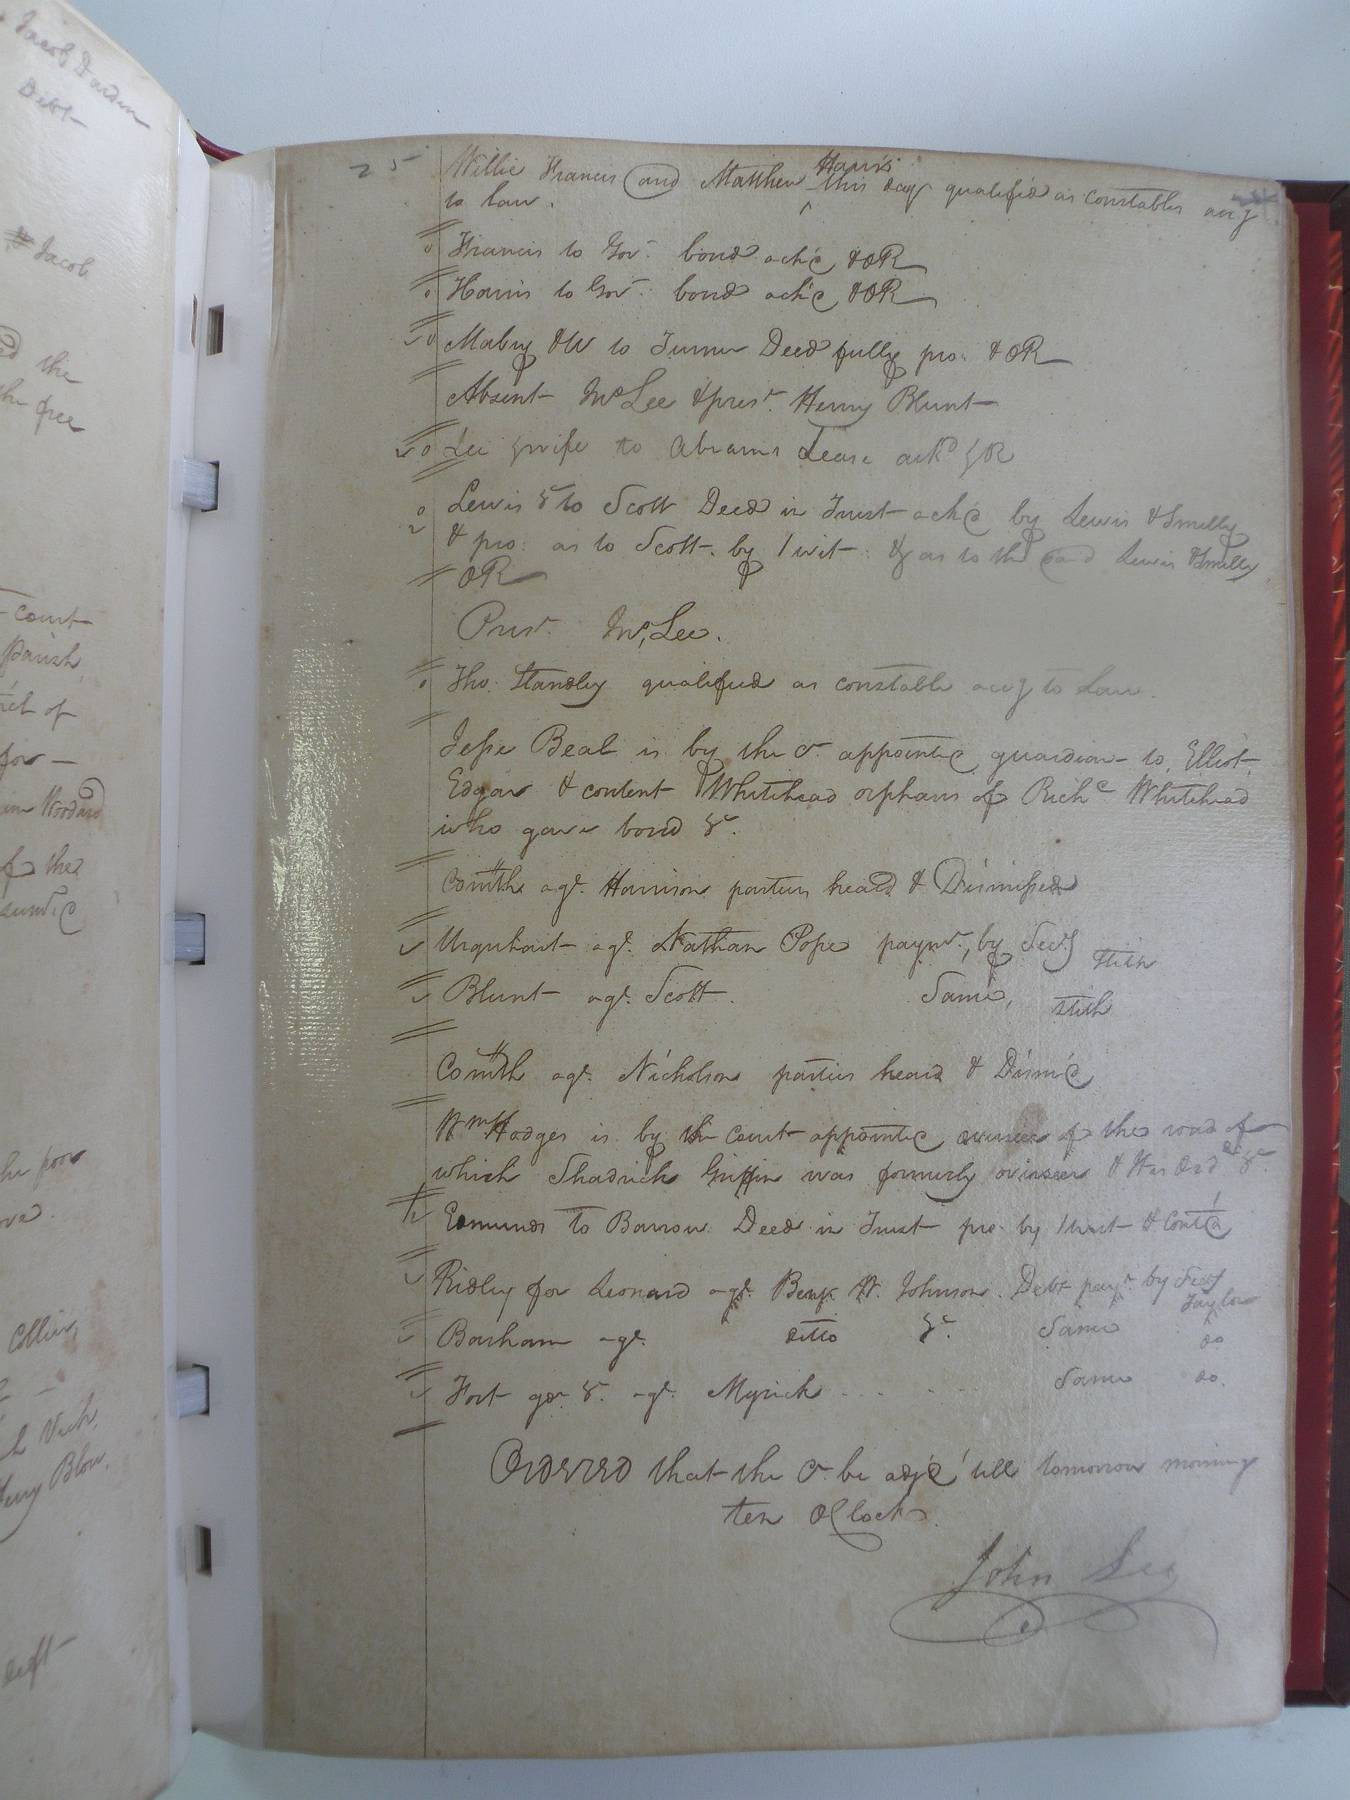 Jacob Darden
Debt
Jacob
the
the free
court
Parish
of
for
Woodard
of the
the poor
Collin
Henry Blow.
25
Harris
Willie Francis and Matthew ^ this day qualified as constables accg
to Law.
Francis to Gov.r bond ack'd & OR
Harris to Gov.r bond ack'd & OR
Mabry & W to Turner Deed fully pro. & OR
Absent Mr. Lee & pres.t Henry Blunt
Lee & wife to Abrams Lease ack'd & R
Lewis &c to Scott Deed in Trust ack'd by Lewis & Smelly
& pro. as to Scott by 1 wit & as to the said Lewis & Smelly
OR
Pres.t Mr. Lee.
Tho. Standley qualified as constable accg to Law.
Jesse Beal is by the Ct appointed guardian to Elliot,
Edgar & content Whitehead orphans of Rich.d Whitehead
who gave bond &c.
Comth agt. Harrison parties heard & Dismissed
Urquhart agt. Nathan Pope paymt., by Secy
Stith
Blunt agt. Scott. Same, Stith
Comth agt. Nicholson parties heard & Dism'd
Wm Hodges is by the Court appointed overseer of the road of
which Shadrick Griffin was formerly overseer & &c.
Edmunds to Barrow Deed in Trust pro. by 1 wit & Cont'd
Ridley for Leonard agt. Benj. W. Johnson. Debt paymt by Secy
Taylor
Barham agt. ditto &c. Same do
Fort &c. agt. Myrick . . . . . Same do.
Ordered that the Ct be adj'd till tomorrow morning
ten OClock.
John Lee